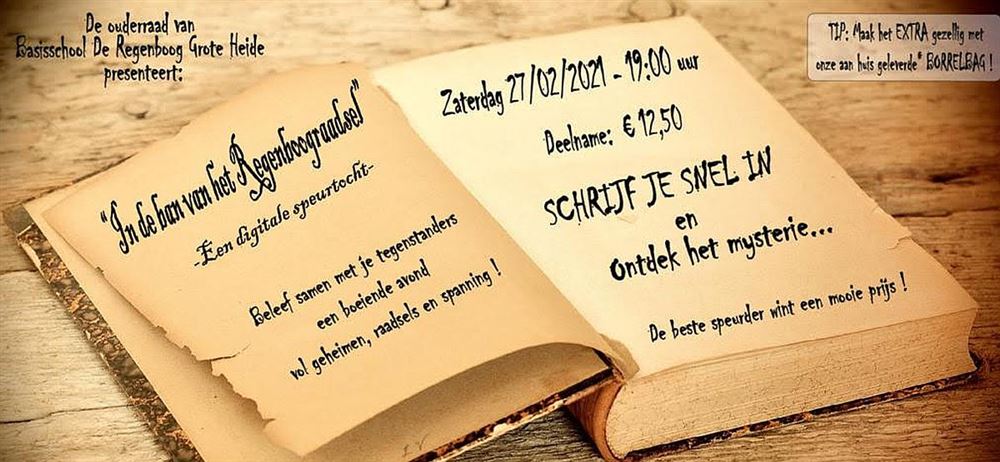 De ouderraad van
Basisschool De Regenboog Grote Heide
presenteert:
TIP: Maak het EXTRA gezellig met
onze aan huis geleverde* BORRELBAG !
"In de ban van het Regenboograadsel"
-Een digitale speurtocht-
Beleef samen met je tegenstanders
een boeiende avond
vol geheimen, raadsels en spanning !
Zaterdag 27/02/2021 - 19:00 uur
Deelname: € 12,50
SCHRIJF JE SNEL IN
en
ontdek het mysterie...
De beste speurder wint een mooie prijs !